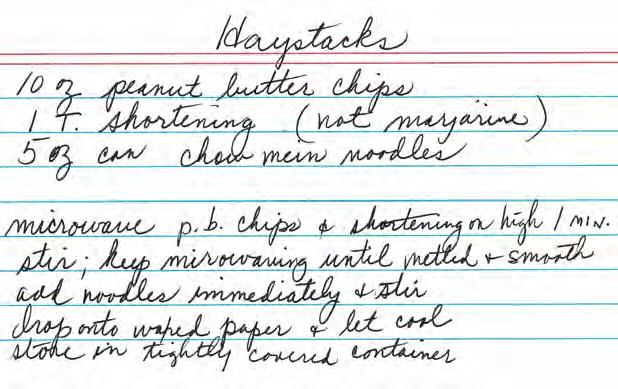 Haystacks
10 oz peanut butter chips
1 T. shortening (not margarine)
5 oz can chow mein noodles
microwave p.b. chips & shortening on high 1 min.
stir; keep mirowaving until metled + smooth
add noodles immediately & stir
drop onto waxed paper & let cool
store in tightly covered container